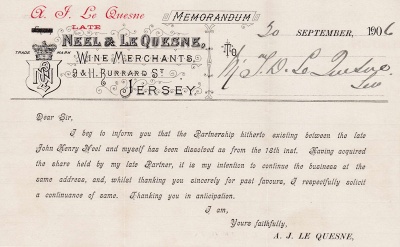 A. J. Le Quesne
LATE
NEEL & LE QUESNE,
WINE MERCHANTS,
9 & 11, BURRARD ST
JERSEY.
TRADE MARK
MEMORANDUM
30 SEPTEMBER, 1906
To
J. D. Le Quesne
Dear Sir,
I beg to inform you that the Partnership hitherto existing between the late
John Henry Neel and myself has been dissolved as from the 18th inst. Having acquired
the share held by my late Partner, it is my intention to continue the business at the
same address, and, whilst thanking you sincerely for past favours, I respectfully solicit
a continuance of same. Thanking you in anticipation.
I am,
Yours faithfully,
A. J. LE QUESNE,